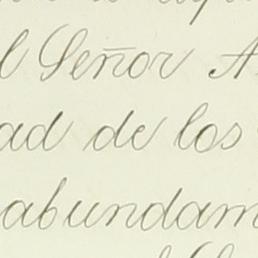 l Señor A
ad de los
abundam